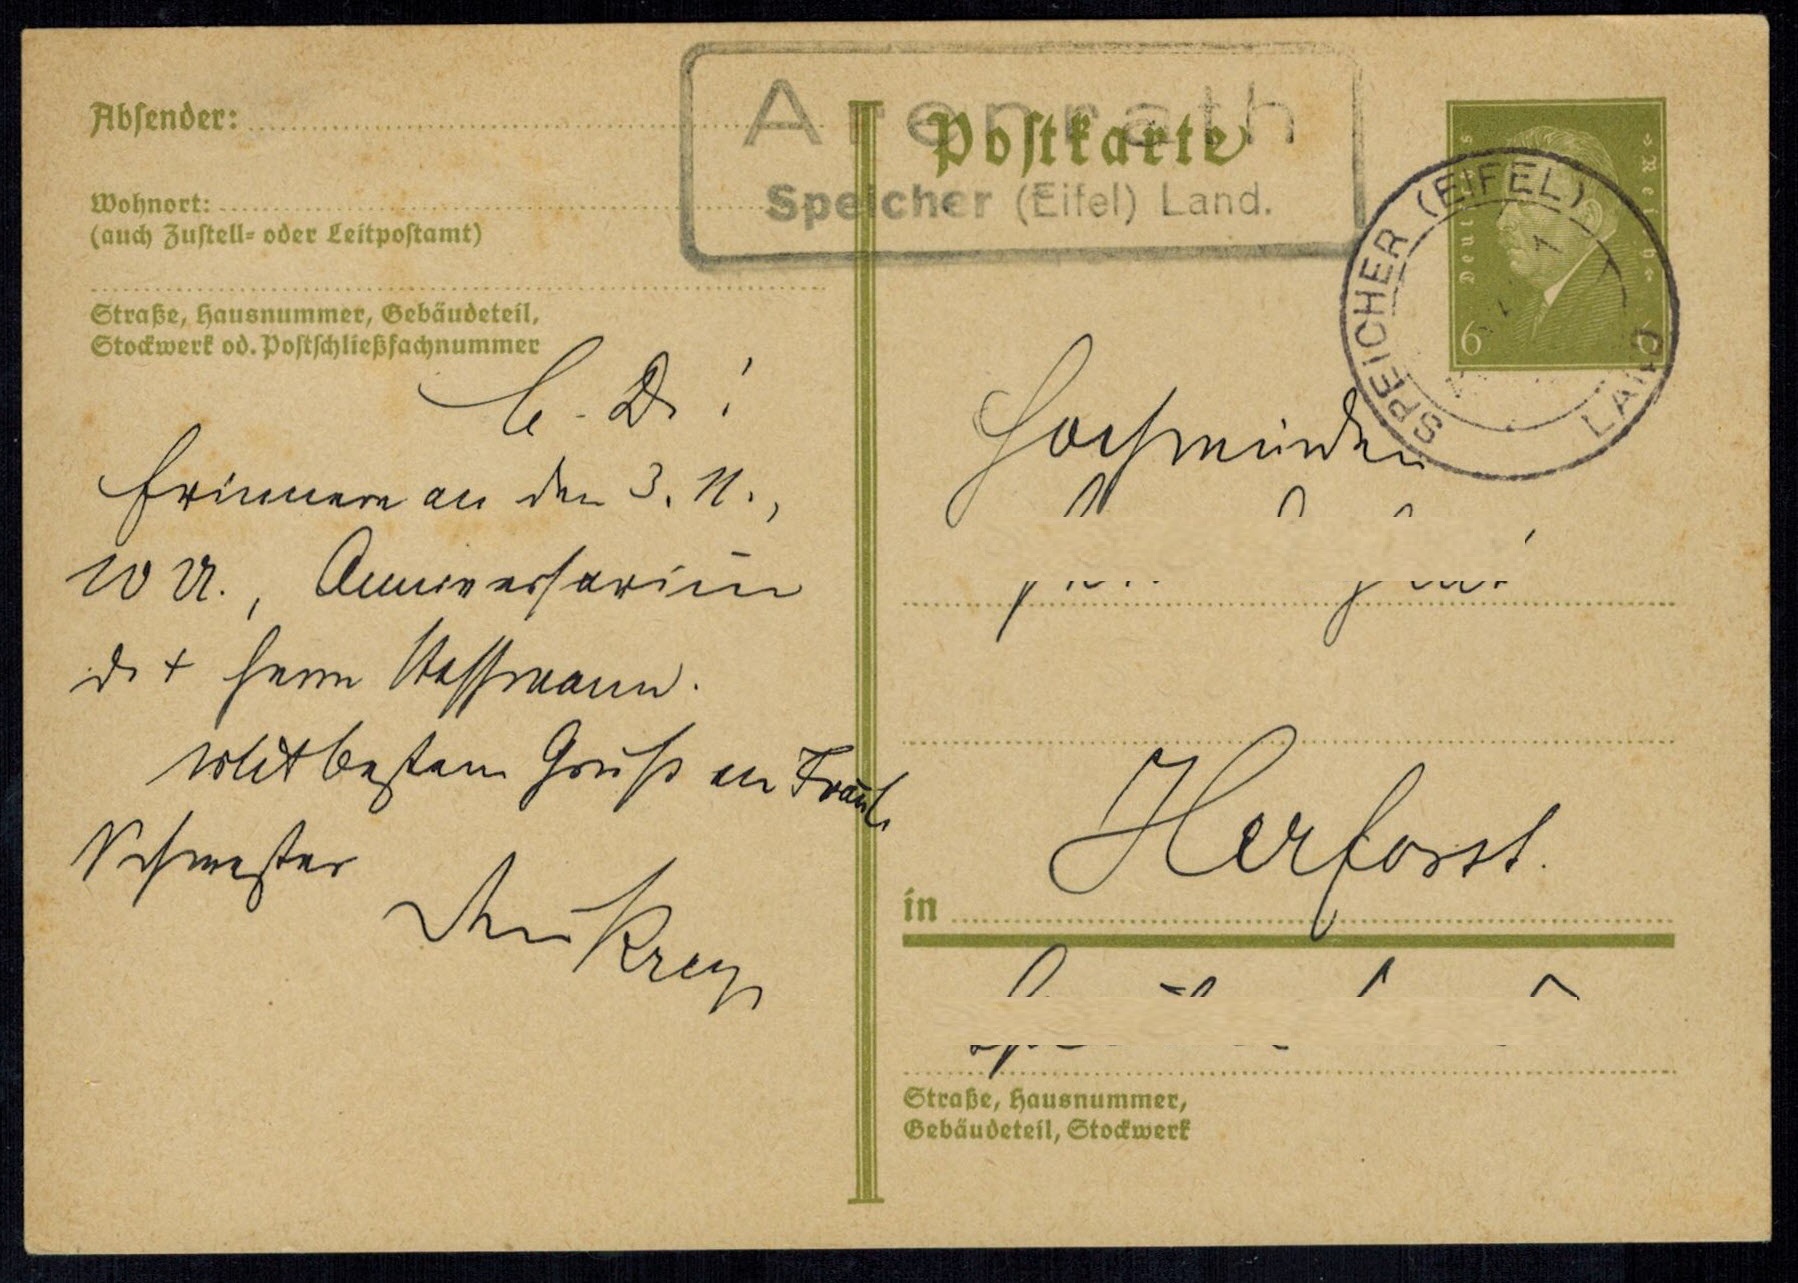 Absender:
Wohnort:
(auch Zustell- oder Leitpostamt)
Straße, Hausnummer, Gebäudeteil,
Stockwerk od. Postschließfachnummer
Arenrath
Speicher (Eifel) Land.
Postkarte
Deutsches Reich
6 6
SPEICHER (EIFEL) LAND
L. D.!
Erinnere an den 3. 11.,
10 U., Anniversarium
d. + Herrn
Mit bestem Gruß an Fräul.
Schwester
Hochwürden
in Herforst.
Straße, Hausnummer,
Gebäudeteil, Stockwerk